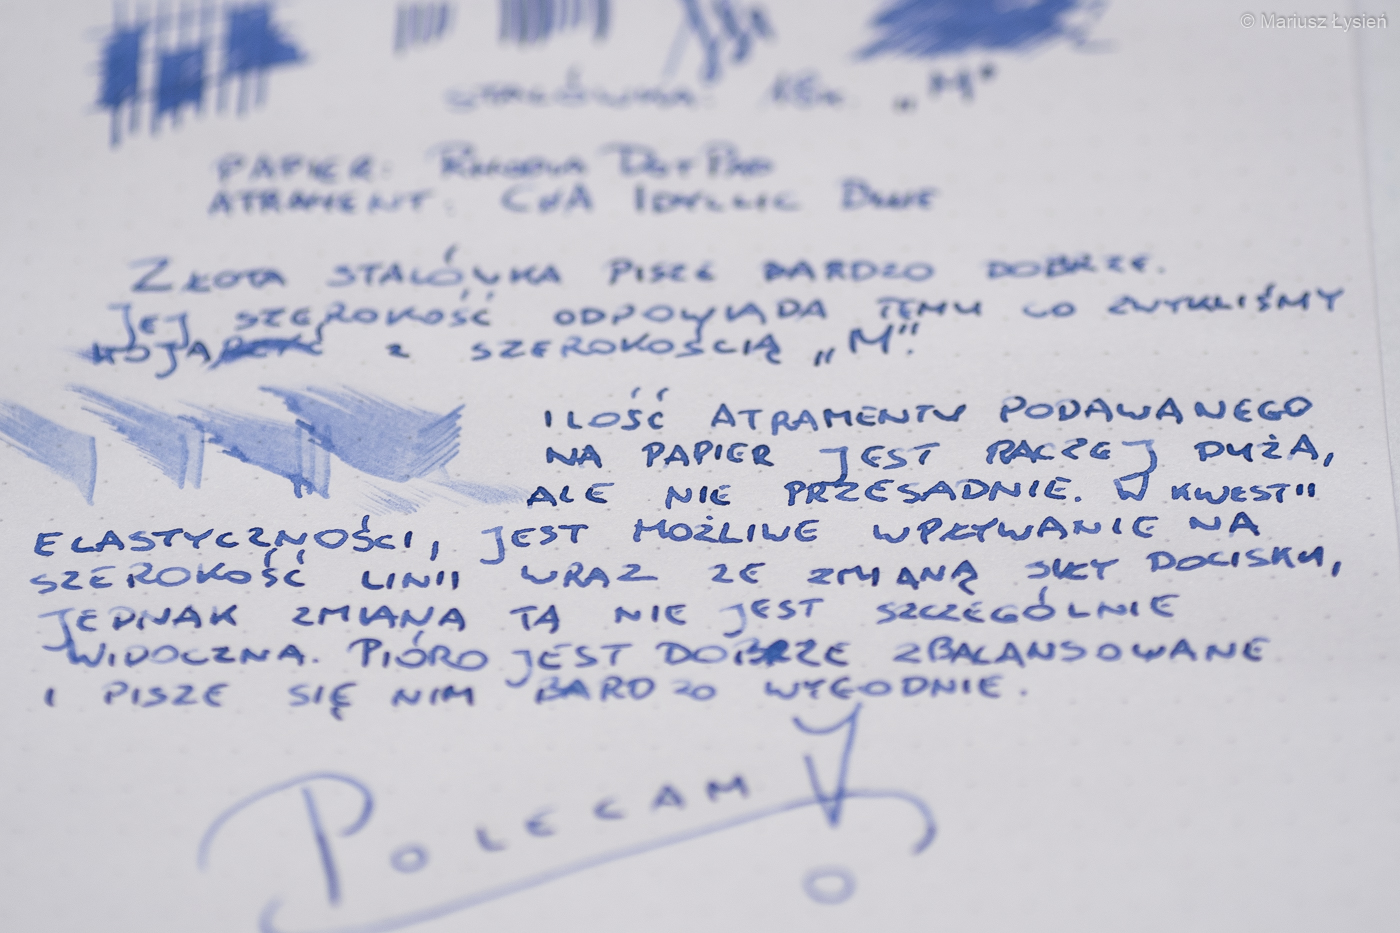 © Mariusz Łysień
STALÓWKA: 18k „M"
PAPIER: RHODIA DOT PAD
ATRAMENT: IDYLLIC BLUE
ZŁOTA STALÓWKA PISZE BARDZO DOBRZE.
JEJ SZEROKOŚĆ ODPOWIADA TEMU CO ZWYKLIŚMY
Z SZEROKOŚCIĄ „M".
ILOŚĆ ATRAMENTU PODAWANEGO
NA PAPIER JEST RACZEJ DUŻA,
ALE NIE PRZESADNIE. W KWESTII
ELASTYCZNOŚCI, JEST MOŻLIWE WPŁYWANIE NA
SZEROKOŚĆ LINII WRAZ ZE ZMIANĄ SIŁY DOCISKU,
JEDNAK ZMIANA TA NIE JEST SZCZEGÓLNIE
WIDOCZNA. PIÓRO JEST DOBRZE ZBALANSOWANE
I PISZE SIĘ NIM BARDZO WYGODNIE.
POLECAM!